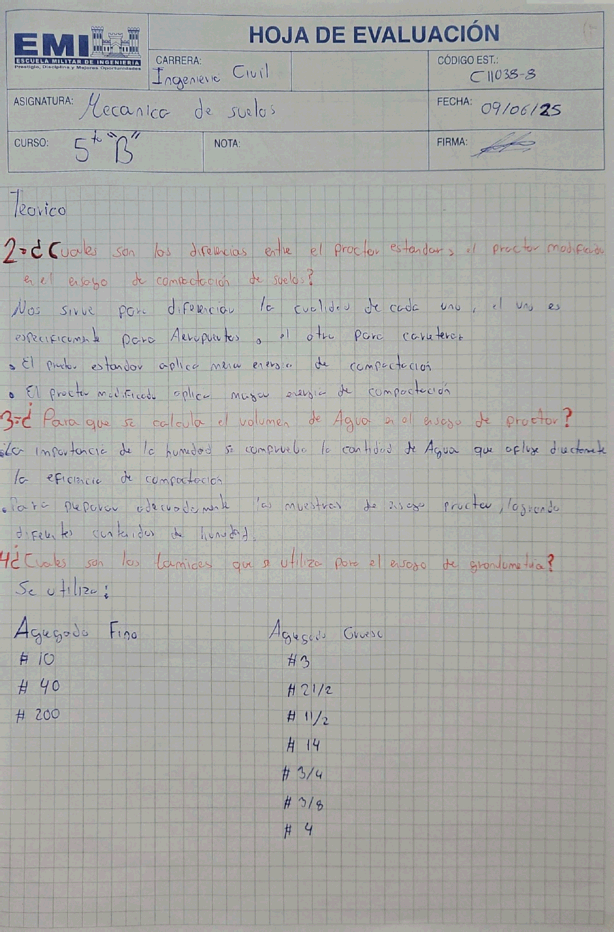 EMI
ESCUELA MILITAR DE INGENIERÍA
Prestigio, Disciplina y Mejores Oportunidades
HOJA DE EVALUACIÓN
CARRERA:
Ingenieria Civil
CÓDIGO EST.:
C11038-8
ASIGNATURA: Mecanica de suelos
FECHA: 09/06/25
CURSO: 5to "B"
NOTA:
FIRMA:
Teorico
2=¿Cuales son las direncias entre el proctor estandar y el proctor modificado
en el ensayo de compactación de suelos?
Nos sirve para diferenciar la cualidad de cada uno, el uno es
especificamente para Aeropuertos, el otro para carreteras
El proctor estandar aplica menor energia de compactación
El proctor modificado aplica mayor energia de compactación
3=¿Para que se calcula el volumen de Agua en el ensayo de proctor?
La importancia de la humedad se comprueba la cantidad de Agua que directamente
la eficiencia de compactación
Para preparar adecuadamente las muestras de ensayo proctor, logrando
diferentes contenidos de humedad.
4¿Cuales son los tamices que se utiliza para el ensayo de granulometria?
Se utiliza:
Agregado Fino
# 10
# 40
# 200
Agregado Grueso
#3
#2 1/2
# 1 1/2
# 14
# 3/4
# 3/8
# 4